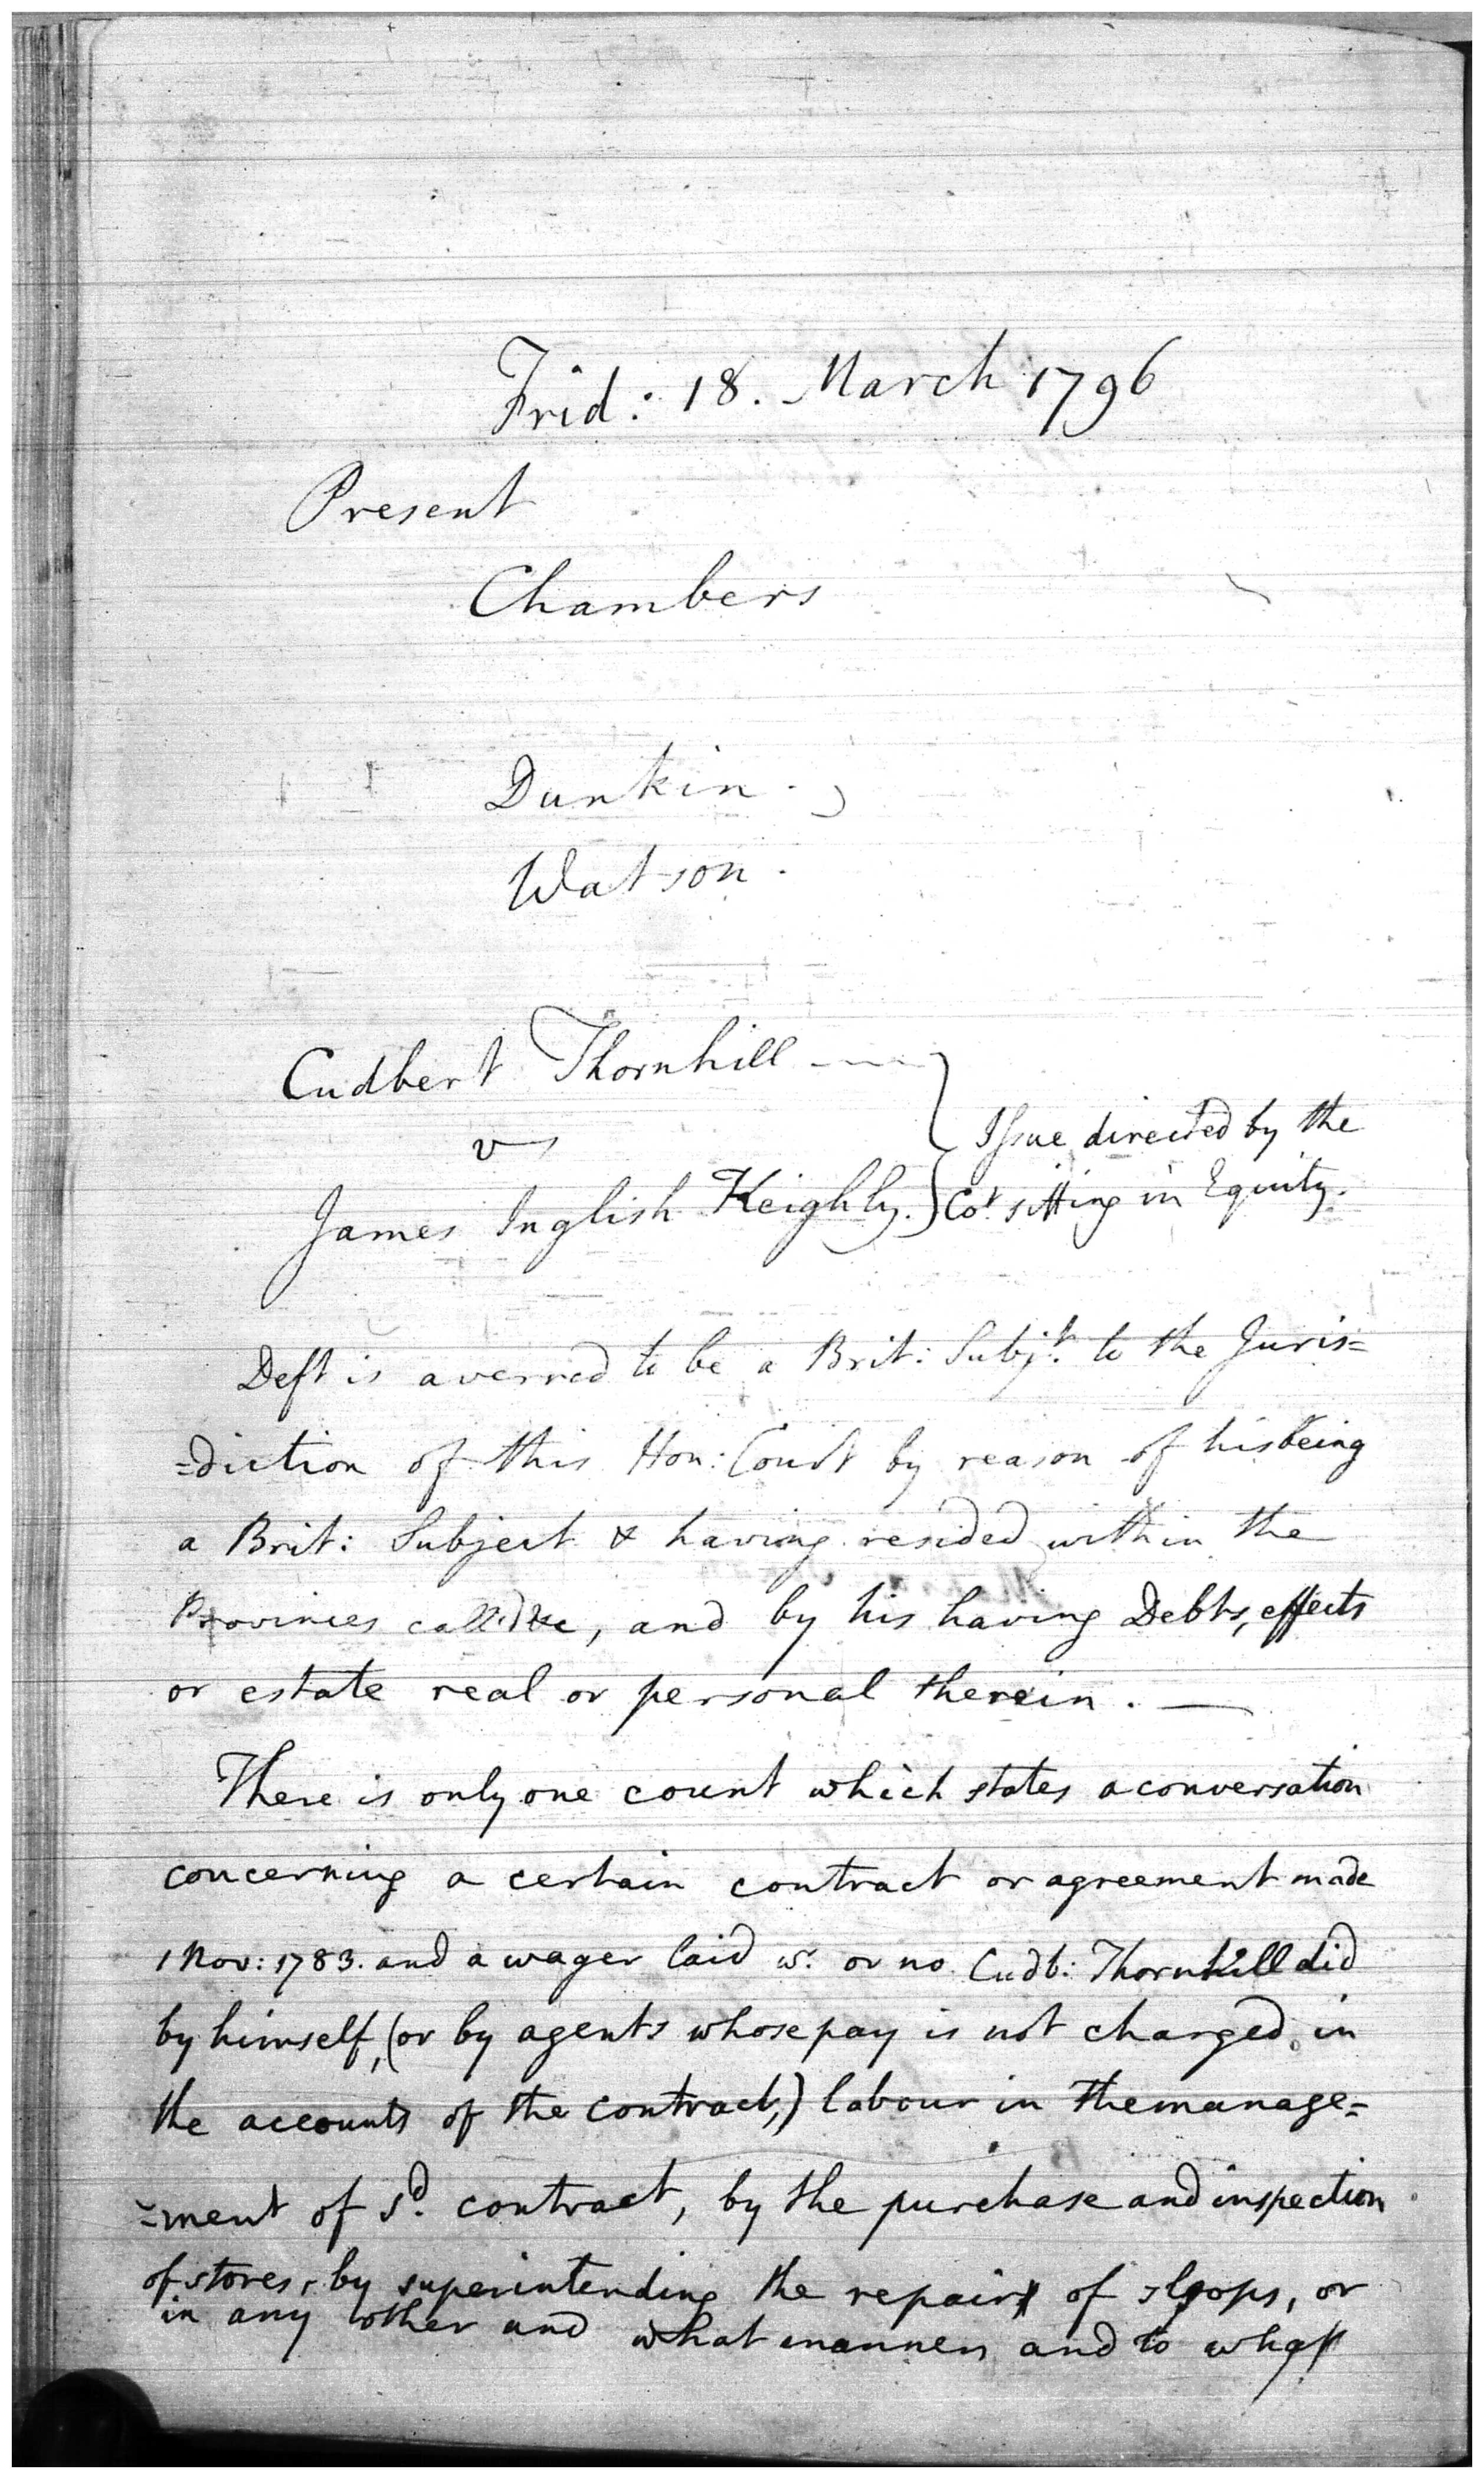 Frid: 18. March 1796
Present
Chambers
Dunkin.
Watson.
Cudbert Thornhill
vs
James Inglish Keighly.
Issue directed by the
Cot. sitting in Equity.
Deft is averred to be a Brit: Subjt. to the Juris=
=diction of this Hon: Court by reason of his being
a Brit: Subject & having resided within the
Provinces call'd &c, and by his having Debts, effects
or estate real or personal therein. —
There is only one count which states a conversation
concerning a certain contract or agreement made
1 Nov: 1783. and a wager laid w. or no Cudb: Thornhill did
by himself, (or by agents whose pay is not charged in
the accounts of the contract,) labour in the manage=
=ment of sd. contract, by the purchase and inspection
of stores, by superintending the repairs of sloops, or
in any other and what manner and to what